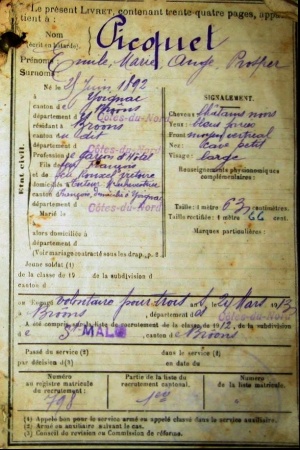 Le présent LIVRET, contenant trente-quatre pages, appa-
tient à :
Nom
(écrit en bâtarde).
Picquet
Prénoms
Emile, Marie Ange Prosper
Surnoms
Né le 2 Juin 1892
à Yvignac
canton de Broons
département d Côtes-du-Nord
résidant à Broons
canton de
département d Côtes-du-Nord
Profession de garçon d'hôtel
fils de François
et de
domiciliés à
canton
département d Côtes-du-Nord
Marié le
à
alors domiciliée à
département d
(Voir mariage contracté sous les drap., p. ).
Etat civil.
SIGNALEMENT.
Cheveux châtains
Yeux
Front vertical
Nez cave petit
Visage large
Renseignements physionomiques
complémentaires :
Taille : 1 mètre 63 centimètres.
Taille rectifiée : 1 mètre 66 cent.
Marques particulières :
Jeune soldat (1)
de la classe de 19 de la subdivision d
canton d
ou Engagé volontaire pour trois ans, 24 Mars 1913
à Broons, département d Côtes-du-Nord
A été compris sur la liste de recrutement de la classe de 1912, de la subdivision
de St MALO canton de Broons
Passé du service (2) dans le service (2)
par décision d(3) en date du
Numéro
au registre matricule
de recrutement :
791
Partie de la liste
de recrutement cantonal.
1re
Numéro
de la liste matricule.
(1) Appelé bon pour le service armé ou appelé classé dans le service auxiliaire.
(2) Armé ou auxiliaire suivant le cas.
(3) Conseil de revision ou Commission de réforme.